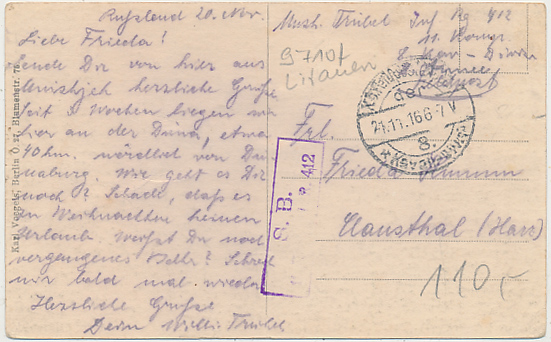 Russland 20. Nov.
Liebe Frieda!
Sende Dir von hier aus
herzliche Grüße
seit 3 Wochen liegen wir
hier an der Düna, etwa
40 km. nördlich von Dü-
naburg. Wie geht es Dir
noch? Schade, daß es
zu Weihnachten keinen
Urlaub Weißt Du noch
vergangenes Schreib
mir bald mal wieder
Herzliche Grüße
Dein Willi Trübel
Karl Voegels, Berlin O. 27, Blumenstr. 75
Musk. Trübel Inf. Rg 412
11. Komp.
8. Kav-Divis
Armee
Feldpost
9710f
Litauen
der
21.11.16 6-7 V
8.
S. B.
412
Frl.
Frieda
Clausthal (Harz)
110,-